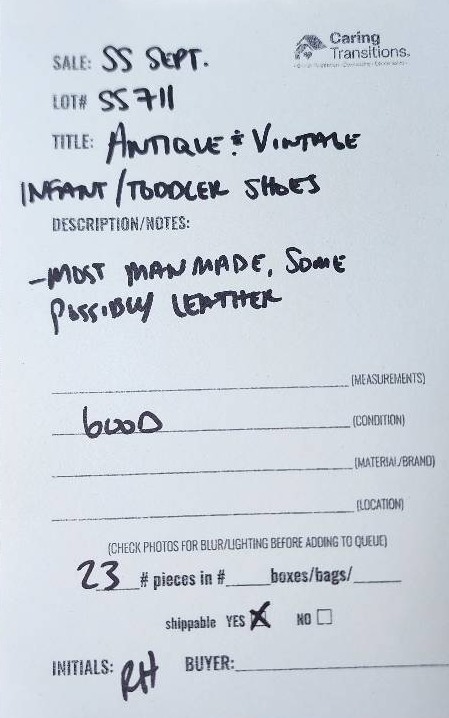 Caring
Transitions®
SALE: SS SEPT.
LOT# SS711
TITLE: ANTIQUE & VINTAGE
INFANT/TODDLER SHOES
DESCRIPTION/NOTES:
-MOST MANMADE, SOME
POSSIBLY LEATHER
(MEASUREMENTS)
GOOD (CONDITION)
(MATERIAL/BRAND)
(LOCATION)
(CHECK PHOTOS FOR BLUR/LIGHTING BEFORE ADDING TO QUEUE)
23 # pieces in #_____boxes/bags/_____
shippable YES ☒ NO ☐
INITIALS: RH BUYER: